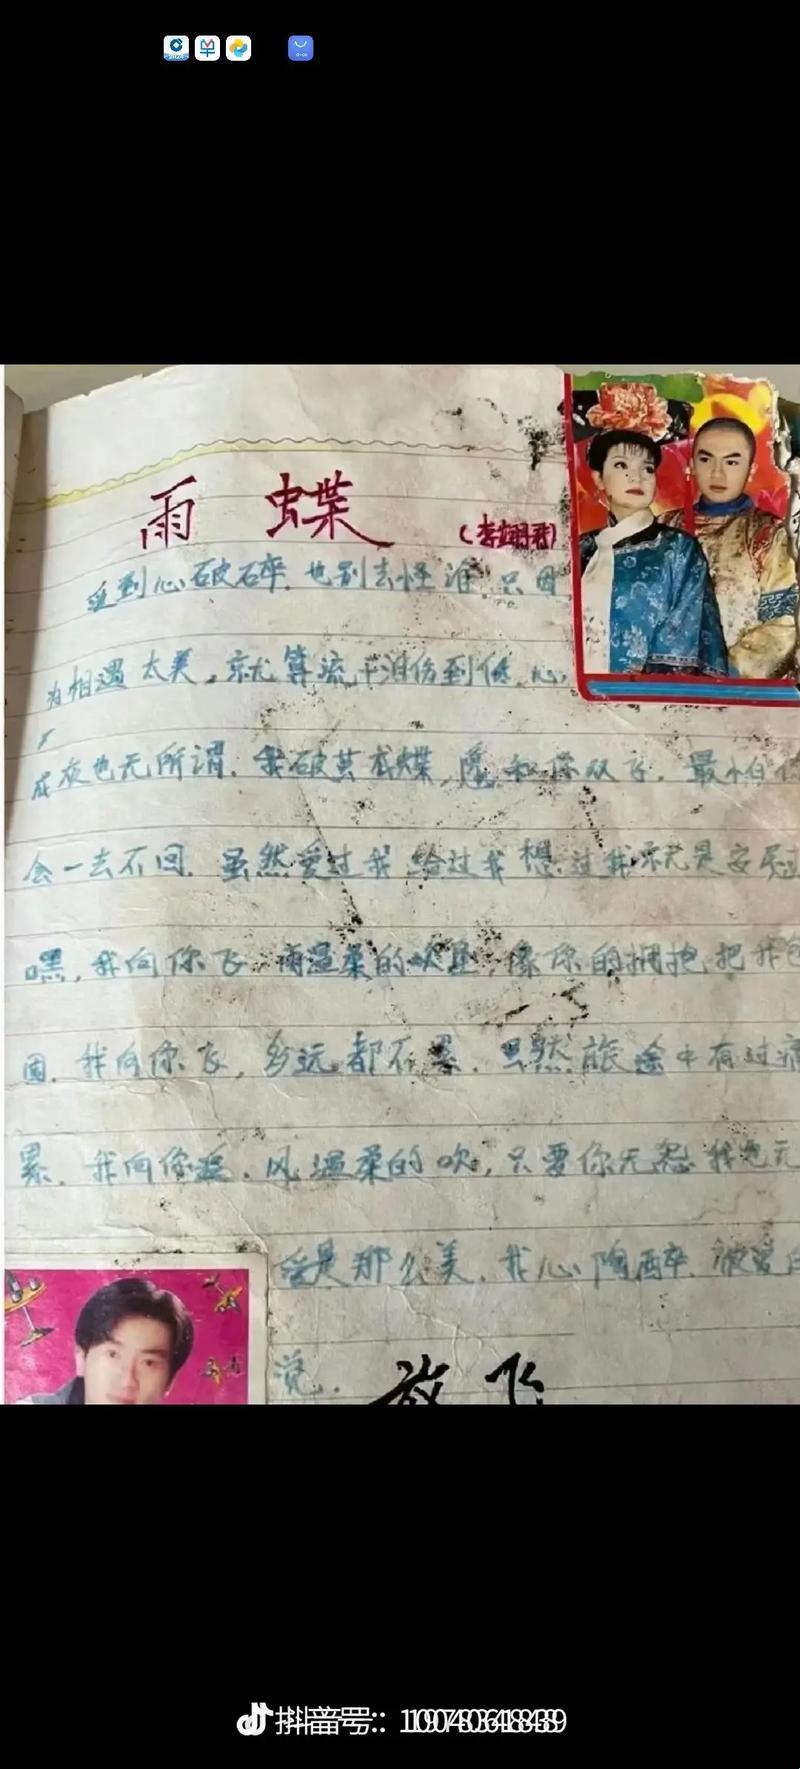 雨 蝶 (李翊君)
爱到心破碎.也别去怪谁.只因
为相遇太美.就算流干泪伤到低.心
成灰也无所谓.我破茧成蝶,愿和你双飞.最怕你
会一去不回.虽然爱过我给过我想过我就是安慰过
嘿,我向你飞.雨温柔的吹,像你的拥抱把我包
围.我向你飞,多远都不累.虽然旅途中有过痛
累.我向你 .风温柔的吹,只要你无怨我也无
爱是那么美.我心陶醉.被爱的
觉.
放飞
抖音号: